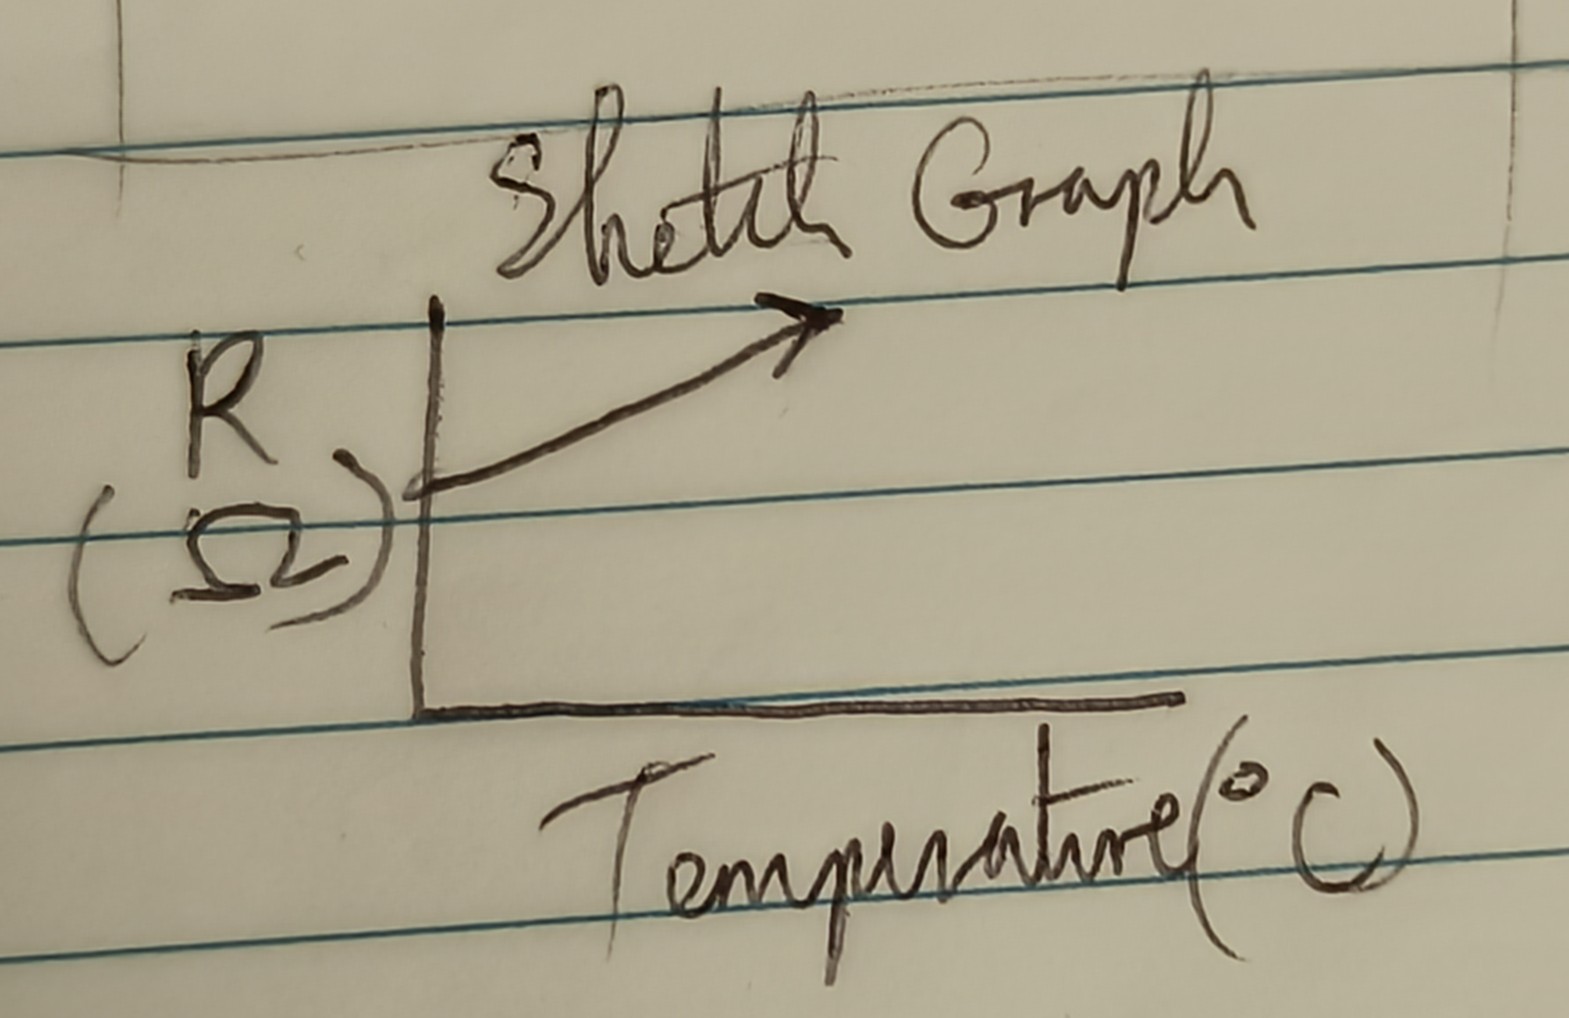 Sketch Graph
R
(Ω)
Temperature (°C)